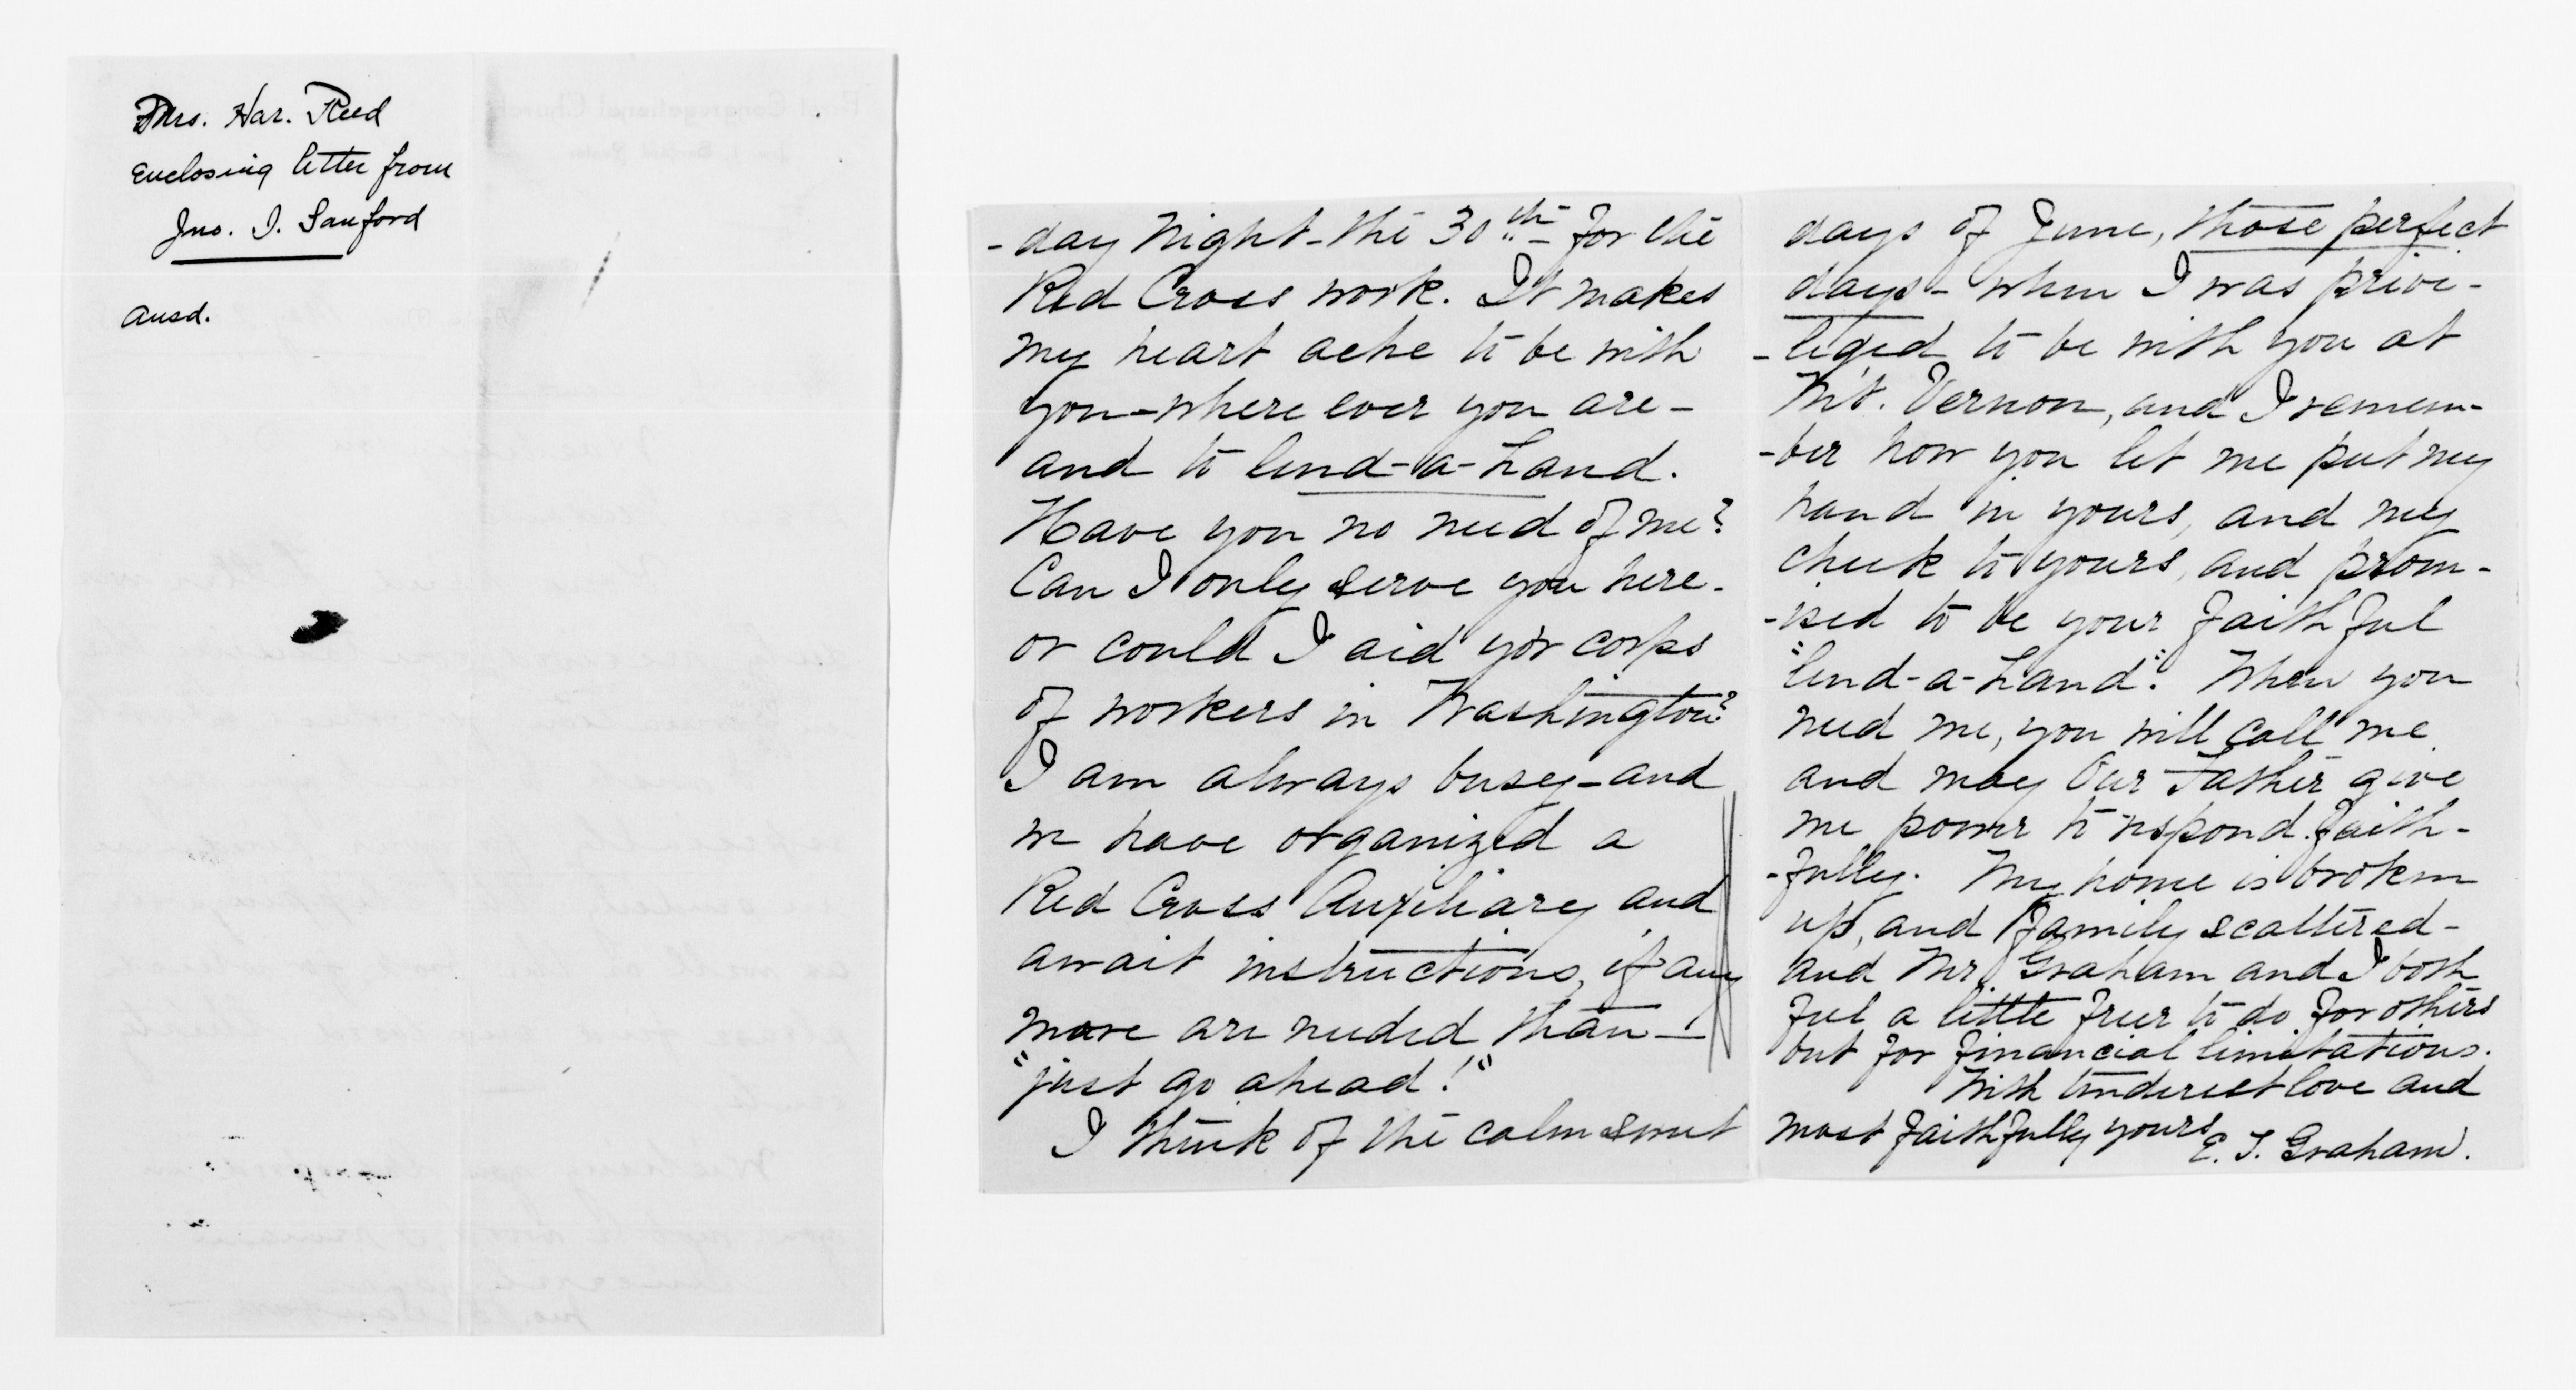 Mrs. Har. Reed
enclosing letter from
Jno. I. Sanford
Ansd.
-day night - the 30th - for the
Red Cross work. It makes
my heart ache to be with
you - where ever you are -
and to lend-a-hand.
Have you no need of me?
Can I only serve you here -
or could I aid yor corps
of workers in Washington?
I am always busy - and
we have organized a
Red Cross Auxiliary and
await instructions, if any
more are needed than -
"just go ahead!"
I think of the calm sweet
days of June, those perfect
days - when I was privi-
-leged to be with you at
Mt. Vernon, and I remem-
-ber how you let me put my
hand in yours, and my
cheek to yours, and prom-
-ised to be your faithful
"lend-a-hand". When you
need me, you will call me
and may Our Father give
me power to respond faith-
-fully. My home is broken
up, and family scattered -
and Mr. Graham and I both
feel a little freer to do for others
but for financial limitations.
With tenderest love and
most faithfully yours
E. T. Graham.